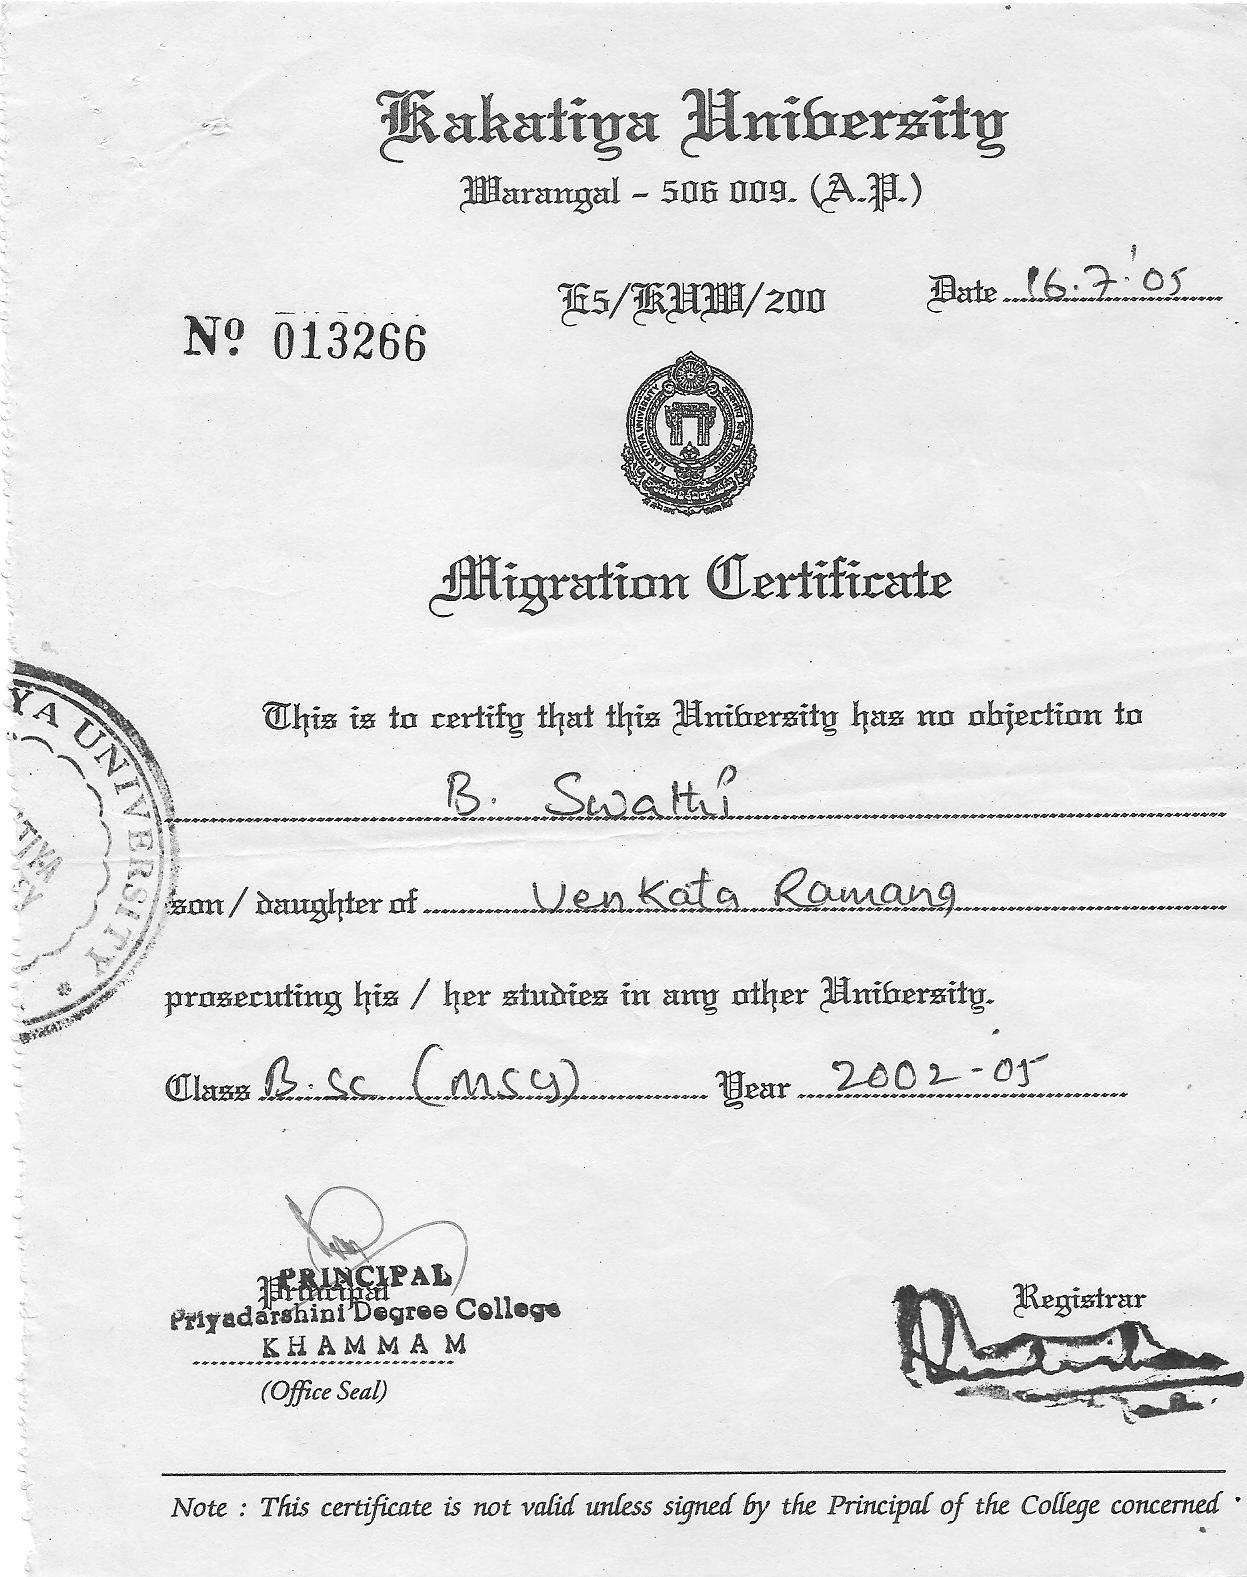 Kakatiya University
Warangal - 506 009. (A.P.)
E5/KUW/200
Date 16.7.'05
Nº. 013266
KAKATIYA UNIVERSITY
Migration Certificate
This is to certify that this University has no objection to
B. Swathi
son / daughter of Venkata Ramana
prosecuting his / her studies in any other University.
Class B.Sc (MSCs) Year 2002-05
YA UNIVERSITY
PRINCIPAL
Principal
Priyadarshini Degree College
KHAMMAM
(Office Seal)
Registrar
Note : This certificate is not valid unless signed by the Principal of the College concerned